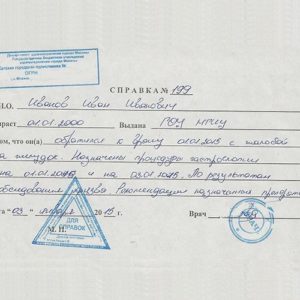 Департамент здравоохранения города Москвы
Государственное бюджетное учреждение
здравоохранения города Москвы
Детская городская поликлиника №
ОГРН
г. Москва
СПРАВКА № 199
И.О. Иванов Иван Иванович
зраст 01.01.2000 Выдана РОУ МРИУ
ом, что он(а) обратился к врачу 01.01.2015 с жалобой
на желудок. Назначены процедуры гастроскопии
на 01.01.2015 и на 03.01.2015. По результатам
обследования Рекомендации назначения
та "03" января 2015 г. Врач
М. П.
ДЛЯ
СПРАВОК